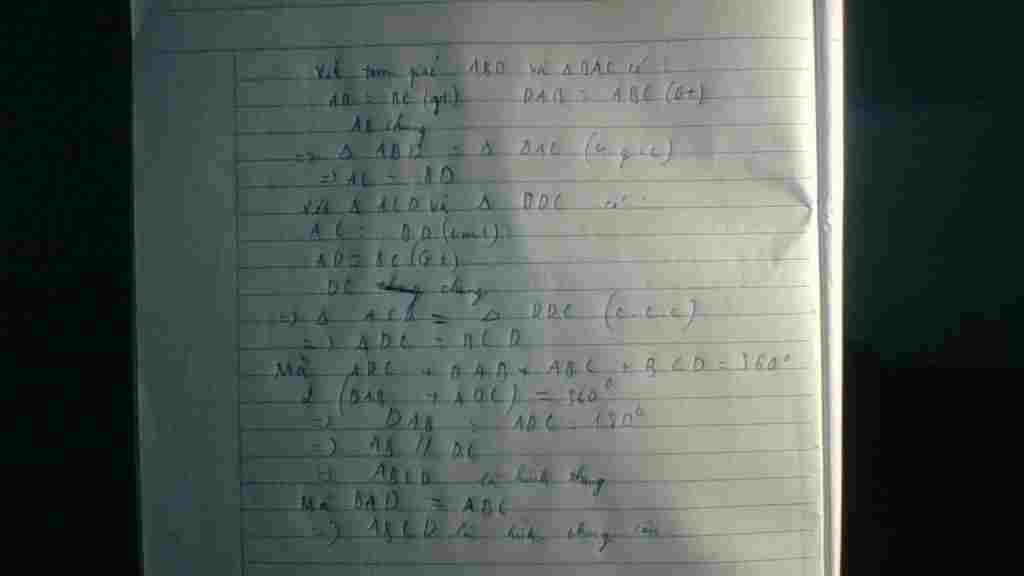 Xét tam giác ABD và Δ BAC có :
AD = BC (gt) DAB = ABC (Gt)
AB chung
=> Δ ABD = Δ BAC (c.g.c)
=> AC = BD
Xét Δ ACD và Δ BDC có :
AC = BD (cmt)
AD = BC (Gt)
DC chung
=> Δ ACD = Δ BDC (c.c.c)
=> ADC = BCD
Mà ADC + DAB + ABC + BCD = 360°
2 (DAB + ADC) = 360°
=> DAB = ADC = 180°
=> AB // DC
=> ABCD là hình thang
Mà BAD = ABC
=> ABCD là hình thang cân